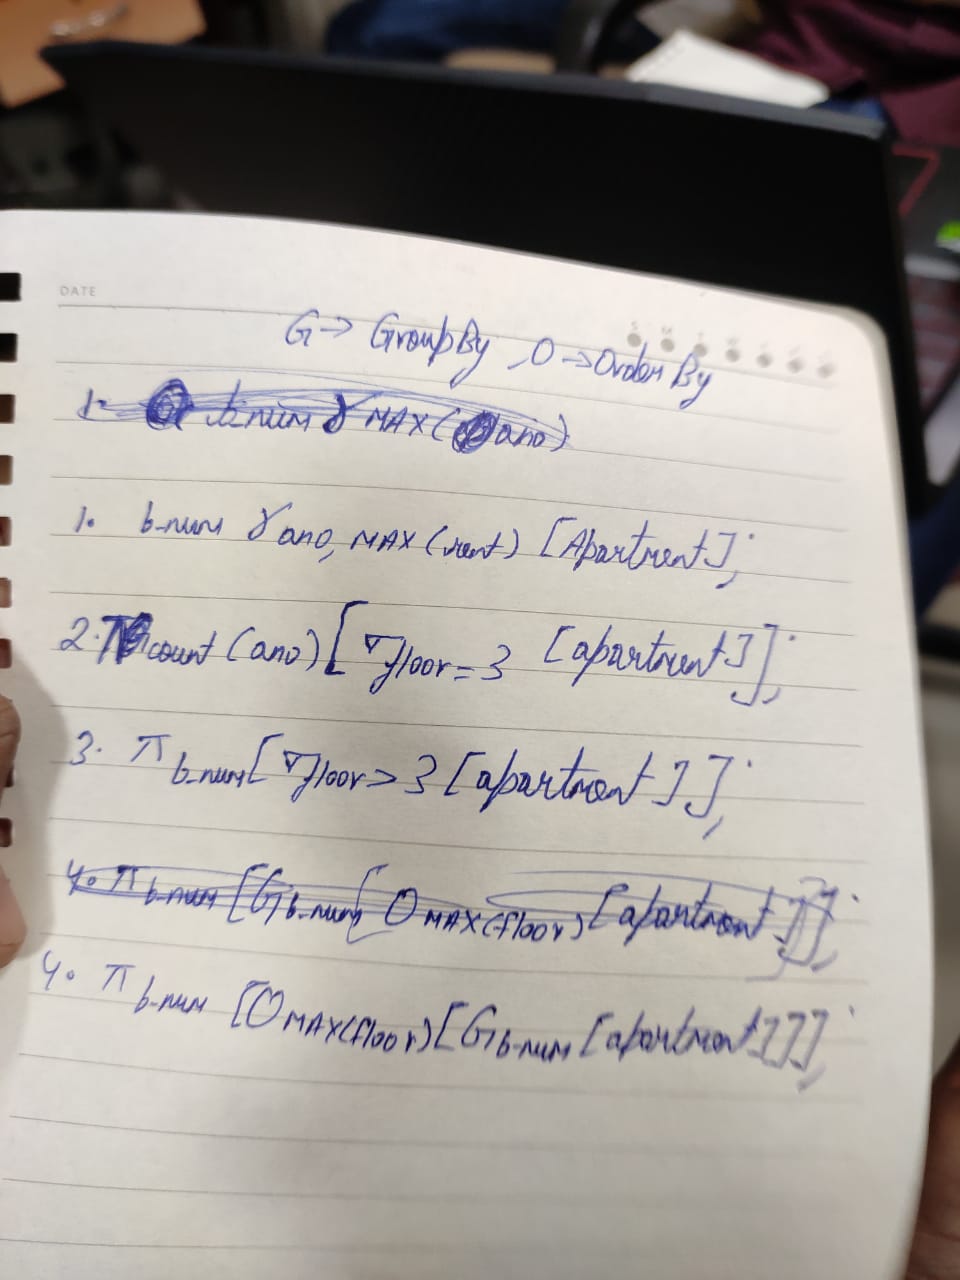 DATE
S M T
G → GroupBy, O → Order By
1. b-num γ MAX(ano)
1. b-num γ ano, MAX (rent) [Apartment];
2. π count (ano) [σ floor = 3 [apartment]];
3. π b-num [σ floor > 3 [apartment]];
4. π b-num [G b-num [O MAX(floor) [apartment]]];
4. π b-num [O MAX(floor) [G b-num [apartment]]];